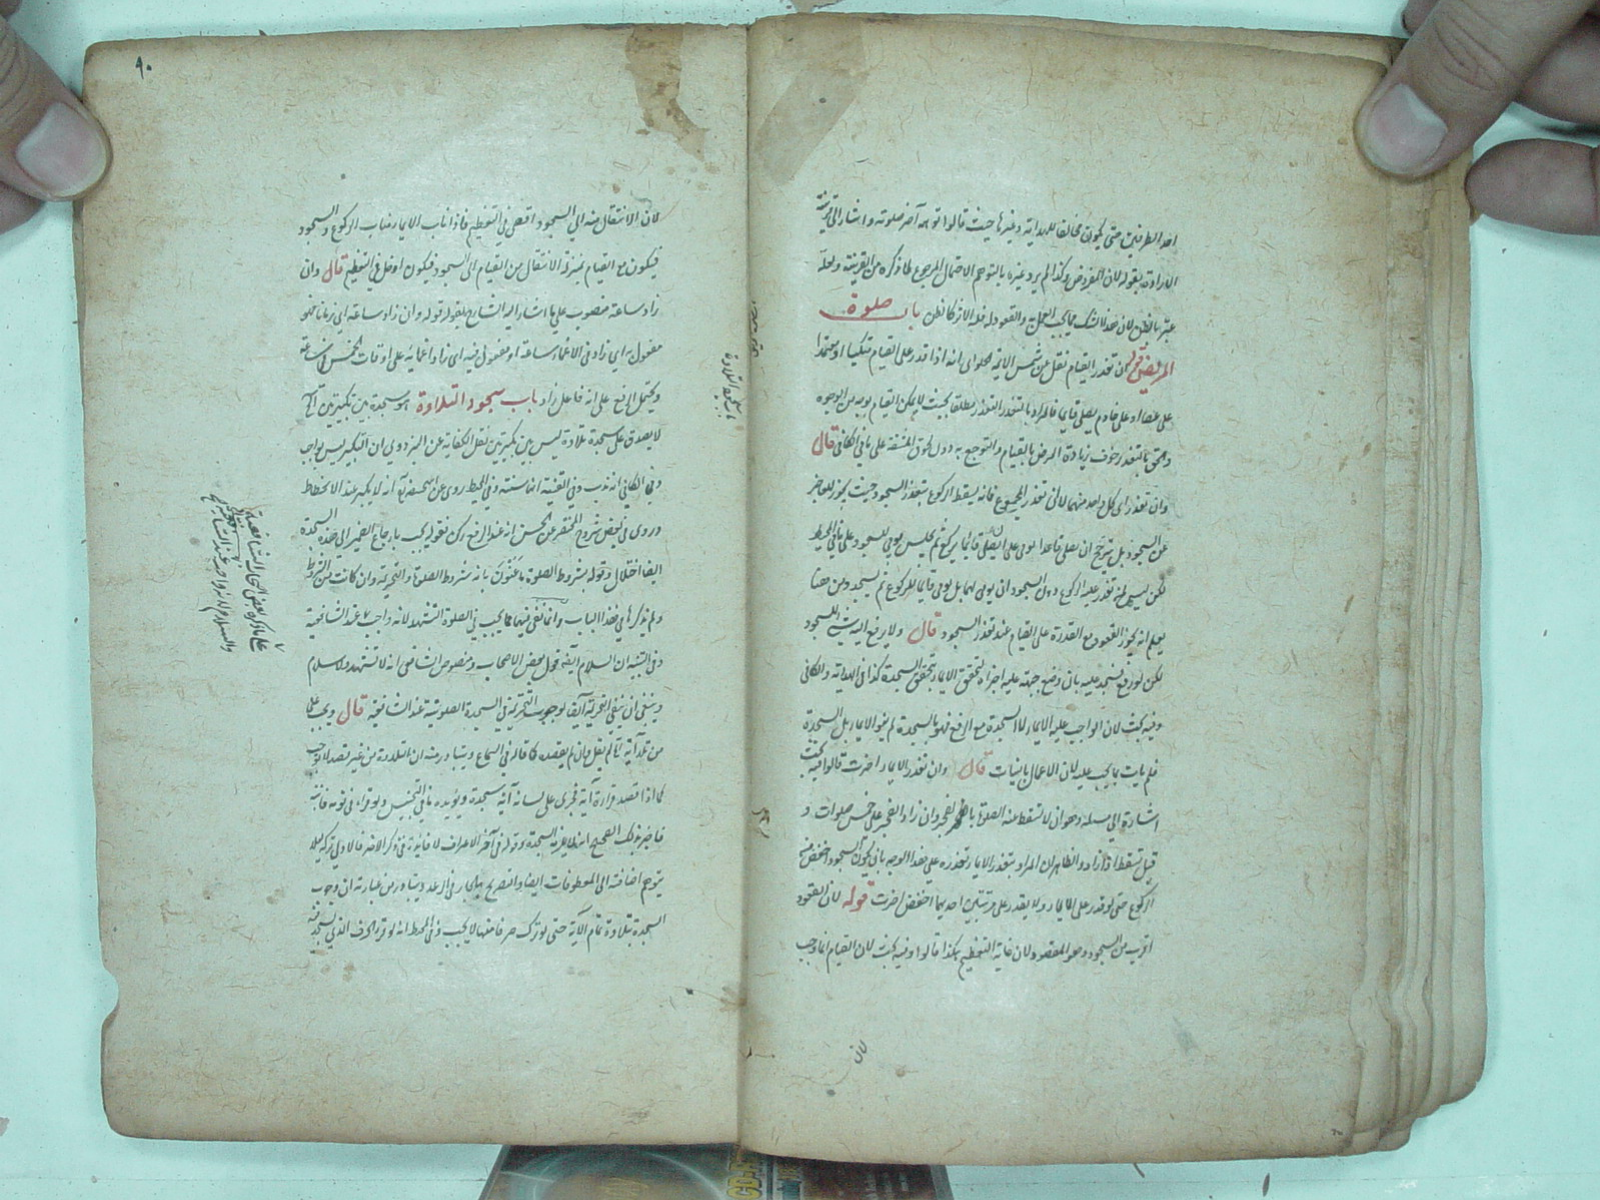 احد الطرفين حتى يكون مخالفا للهداية وغيرها حيث قالوا توهمه آخر صلوته واشار الى
الارادة بقوله لان المفروض وكذا لم يرد غيره بالتوهم الاحتمال المرجوح لما ذكره من القرينة ولعله
عبر بالظن لان هذا لشك والقعود له فعله الاركان باب صلوة
المريض قوله ان تعذر القيام نقل عن شمس الائمة الحلواى انه اذا قدر على القيام متكيا او معتمدا
على عصا او على خادم يصلى قايما فالمراد بالتعذر التعذر مطلقا بحيث لا يمكن القيام بوجه من الوجوه
والحق بالتعذر خوف زيادة المرض بالقيام والتوجع به دون لحوق المشقة على ما فى الكافى قال
وان تعذر اى كل واحد منهما لانى تعذر المجموع فانه يسقط الركوع بتعذر السجود حيث يجوز للعاجز
عن السجود بل يترجح ان يصلى قاعدا يومى على ان يصلى قايما يركع ثم يجلس يومى للسجود على ما فى المحيط
لكن ليس لمن تعذر عليه الركوع دون السجود ان يومى لهما بل يومى قايما للركوع ثم يسجد ومن هنا
يعلم انه يجوز القعود مع القدرة على القيام عند تعذر السجود قال ولا يرفع اليه شئ للسجود
لكن لو رفع فسجد عليه بان وضع جبهته عليه اجزاه لتحقق الايماء بتحقق السجدة كذا فى الهداية والكافى
وفيه بحث لان الواجب عليه الايماء لا السجدة مع الرفع فهو بالسجدة لم ينو الايماء بل السجدة
فلم يات بما يجب عليه لان الاعمال بالنيات قال وان تعذر الايماء اخرت قالوا فيه بحث
اشارة الى مسئلة وهو ان لا تسقط عنه الصلوة وان زاد العجز على خمس صلوات و
قيل تسقط اذا زاد والظاهر ان المراد بتعذر الايماء تعذره على هذا الوجه بانى يكون السجود اخفض من
الركوع حتى لو قدر على الايماء ولا يقدر على مرتبتين احديهما اخفض اخرت قوله لان القعود
اقرب من السجود وهو المقصود لان غاية التعظيم هكذا قالوا وفيه بحث لان القيام انما وجب
لان
٩٠
لان الانتقال منه الى السجود اقصى فى التعظيم فاذا ناب الايماء مناب الركوع والسجود
فيكون مع القيام بمنزلة الانتقال من القيام الى السجود فيكون ادخل فى التعظيم قال وان
زاد ساعة منصوب على ما اشار اليه الشارح بقوله قوله وان زاد ساعة اى زمانا فهو
مفعول به اى زاد فى الاغماء ساعة او مفعول فيه اى زاد اغمايه على اوقات الخمس ساعة
ويحتمل الرفع على انه فاعل زاد باب سجود التلاوة هو سجدة بين تكبيرتين الخ
لا يصدق على سجدة تلاوة ليس بين تكبيرتين نقل الكفاية عن البزدوى ان التكبير ليس بواجب
وفى الكافى انه ندب وفى القنية انها سنة وفى المحيط روى عن ابى حنيفة انه لا يكبر عند الانحطاط
وروى فى بعض شروح المختصر عن الحسن انه عند الرفع ركن فقوله يجب بارجاع الضمير الى هذه السجدة
ايضا اختلال وقوله بشروط الصلوة ما عنون بانه شروط الصلوة والتحريمة وان كانت من الشروط
ولم يذكرها فى هذا الباب وانما نفى فيهما مما يجب فى الصلوة التشهد لانه واجب عند الشافعية
وفى التنبيه ان السلام ايضا قول بعض الاصحاب ومنصوص الشافعى انه لا تشهد ولا سلام
وينبغى ان ينفى التحريمة ايضا لوجوب التحريمة فى السجدة الصلوتية عند الشافعية قال ويجب على
من تلا آية لم يقل وان لم يقصده كما قاله فى السماع ويتبادر منه ان التلاوة من غير قصد لا توجب
كما اذا قصد قراءة آية فجرى على لسانه آية سجدة ويؤيده ما فى التجنيس ولو قراء فى نومه فانتبه
فاخبر بذلك الصحيح انه لا يلزمه السجدة وقوله فى آخر الاعراف لا فايدة فى ذكر الآخر فالاولى تركه ليلا
يتوهم اضافته الى المعطوفات ايضا والتصريح بالجار فى الرعد ويتبادر من عبارته ان وجوب
السجدة بتلاوة تمام الآية حتى لو ترك حرفا منها لا يجب وفى المحيط انه لو قرا الحرف الذى يسجد فيه
سجود التلاوة
على ما ذكره بعض اصحاب الشافعية